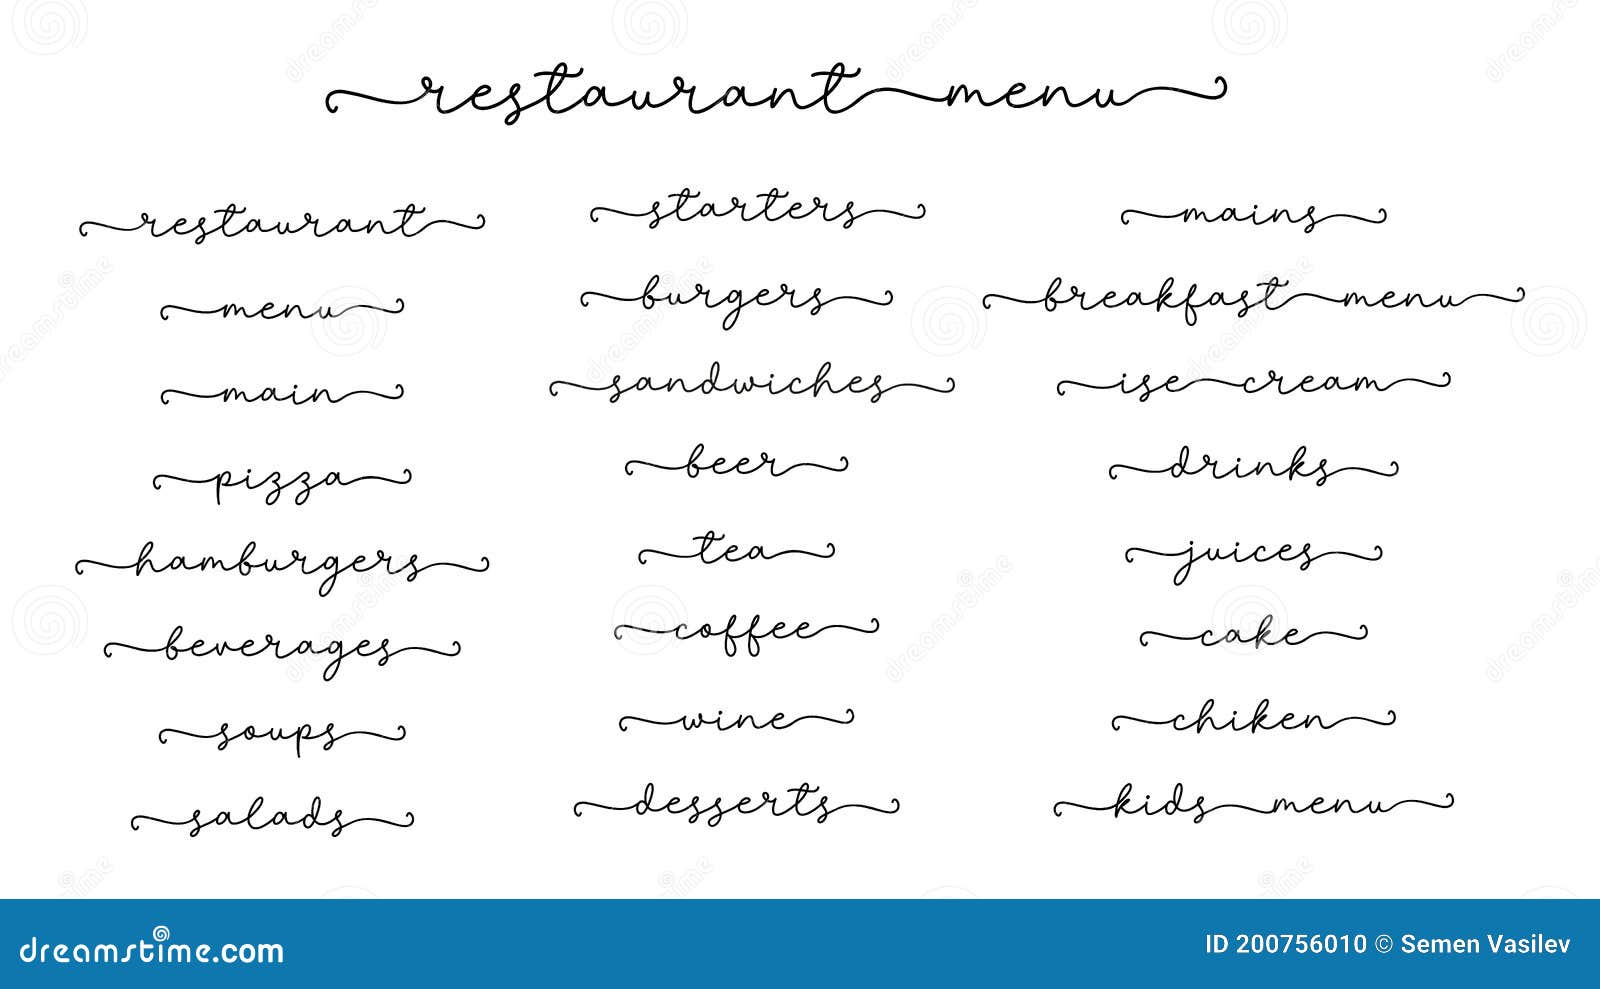 restaurant menu
restaurant
menu
main
pizza
hamburgers
beverages
soups
salads
starters
burgers
sandwiches
beer
tea
coffee
wine
desserts
mains
breakfast menu
ise cream
drinks
juices
cake
chiken
kids menu
dreamstime.com
ID 200756010 © Semen Vasilev